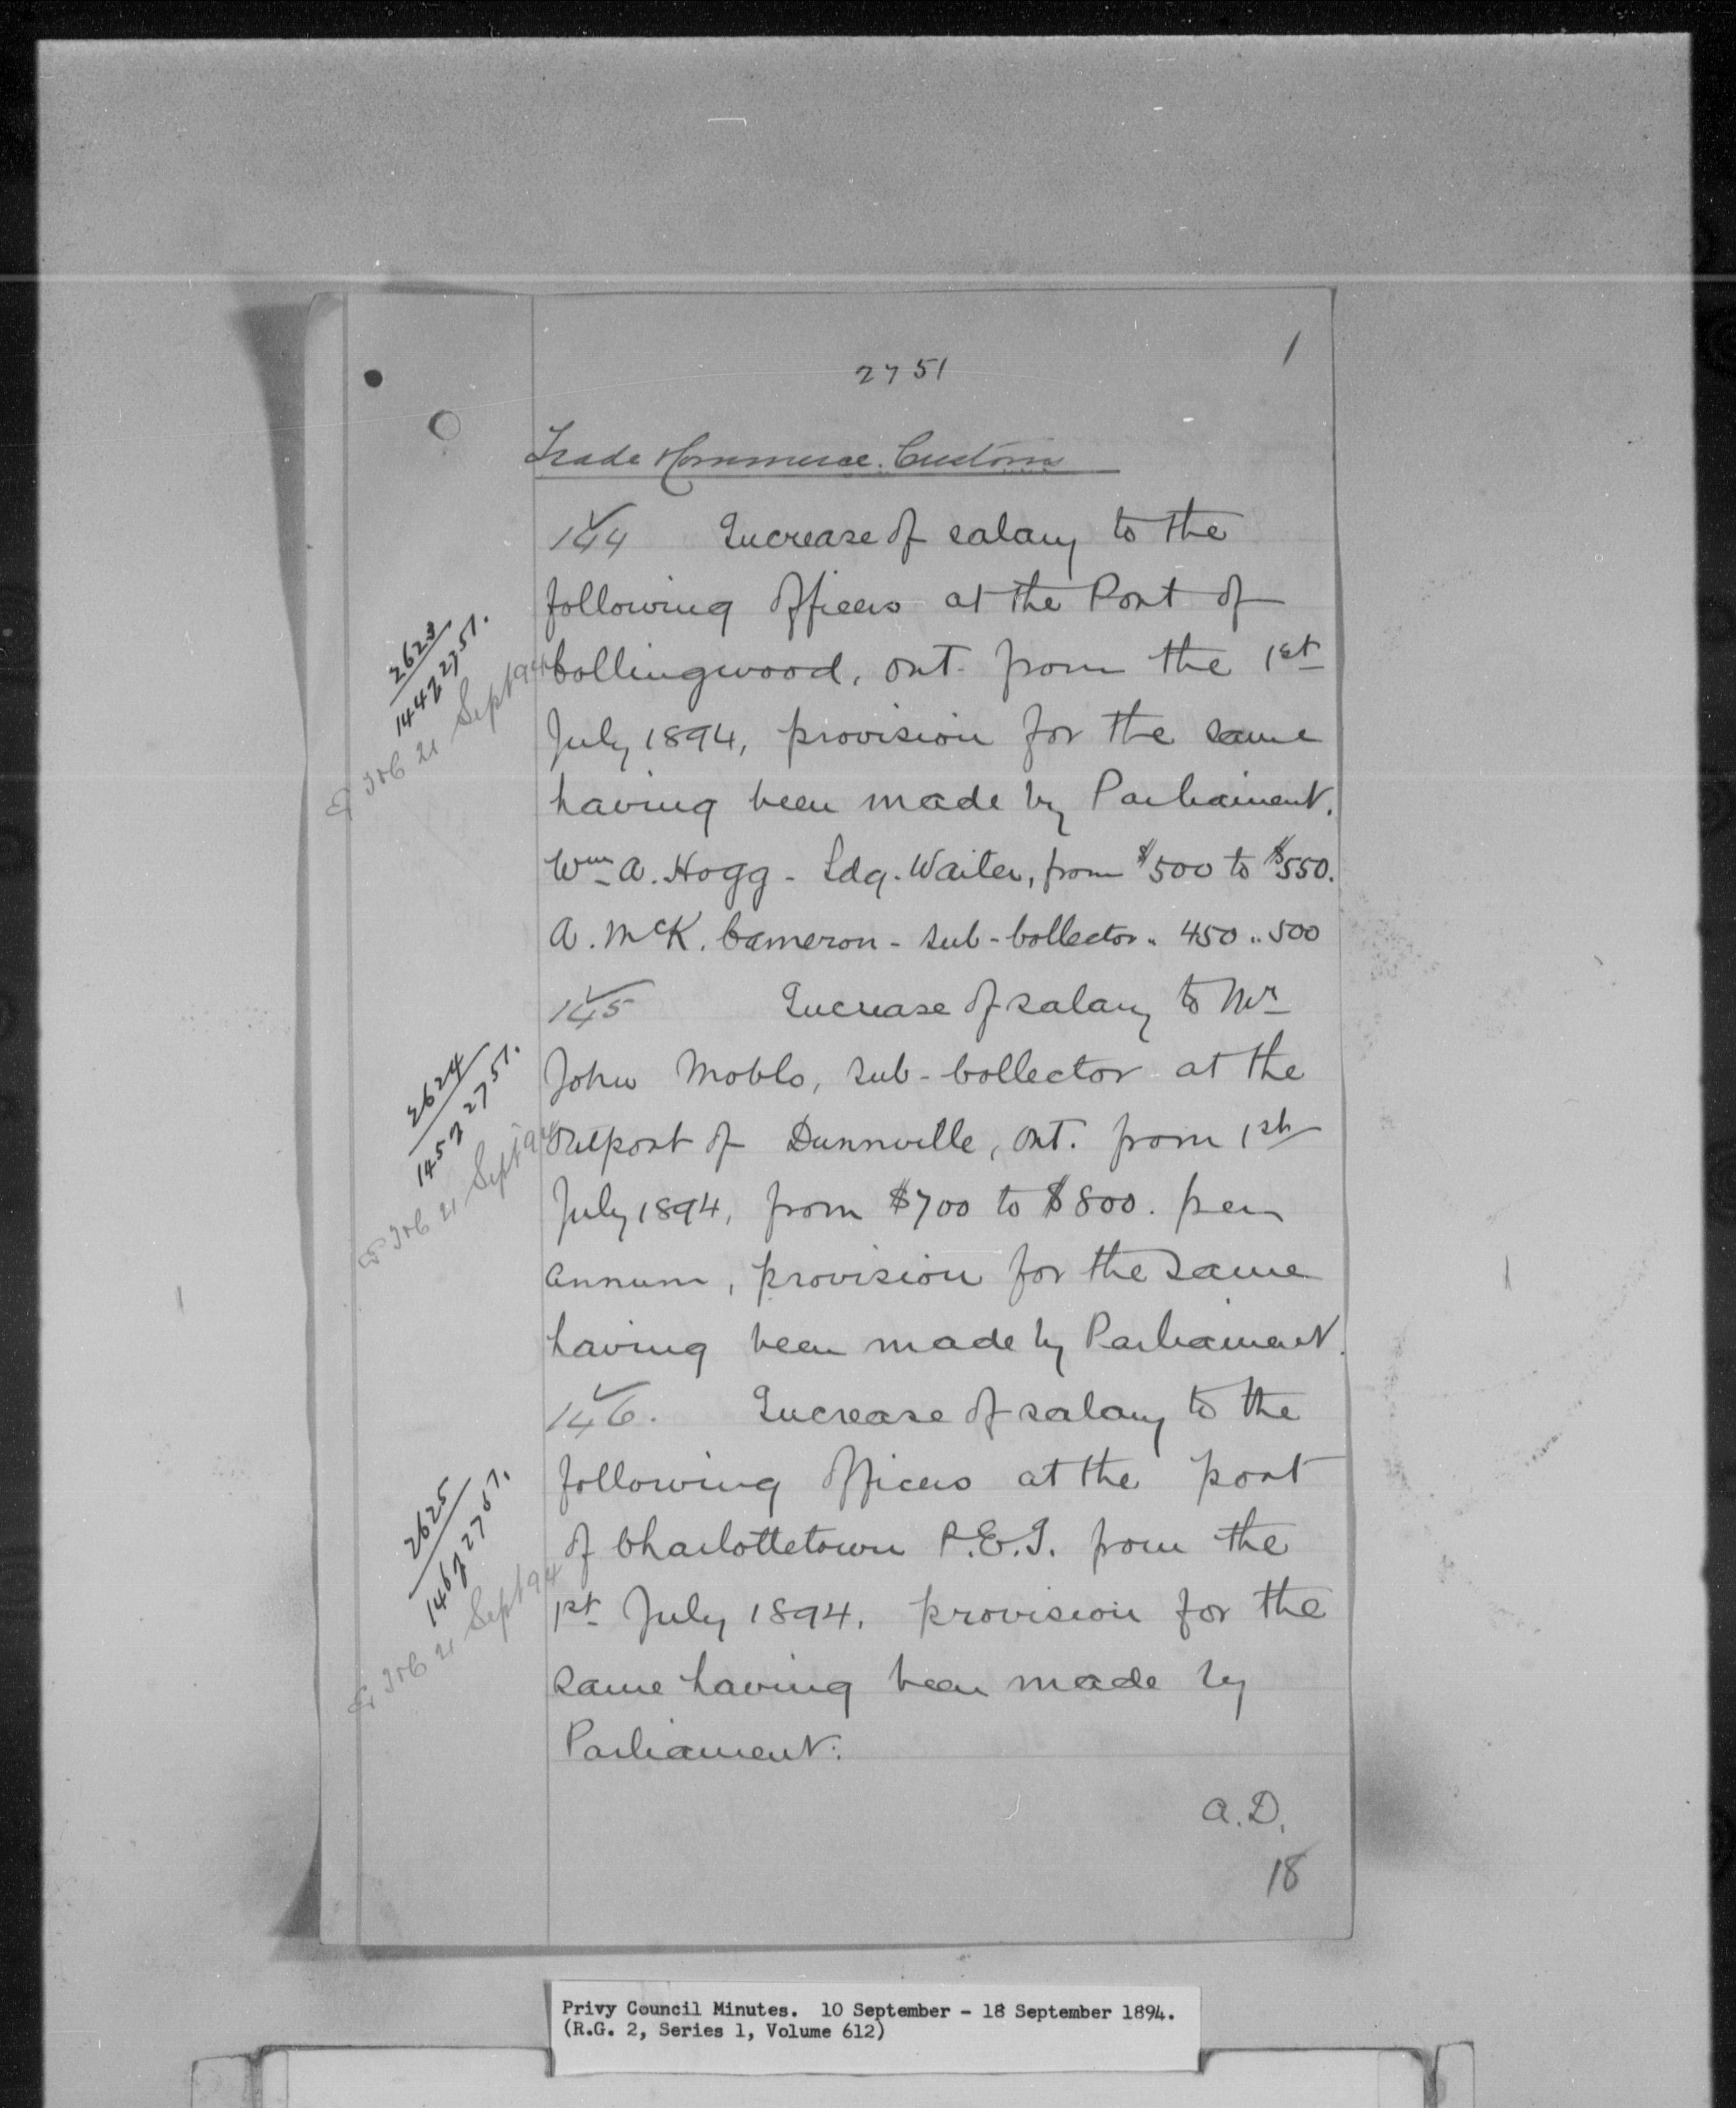 1
2751
Trade & Commerce. Customs
144 Increase of salary to the
following Officers at the Port of
Collingwood, Ont. from the 1st
July 1894, provision for the same
having been made by Parliament.
Wm A. Hogg - Ldg. Waiter, from $500 to $550.
A. McK. Cameron - Sub-Collector " 450 " 500
145 Increase of salary to Mr
John Sub-Collector at the
Outport of Dunnville, Ont. from 1st
July 1894, from $700 to $800. per
annum, provision for the same
having been made by Parliament.
146. Increase of salary to the
following Officers at the port
of Charlottetown P.E.I. from the
1st July 1894, provision for the
same having been made by
Parliament.
A.D.
18
2623
144 2751.
21 Sept 94
2624
145 2751.
21 Sept 94
2625
146 2751.
21 Sept 94
Privy Council Minutes. 10 September - 18 September 1894.
(R.G. 2, Series 1, Volume 612)